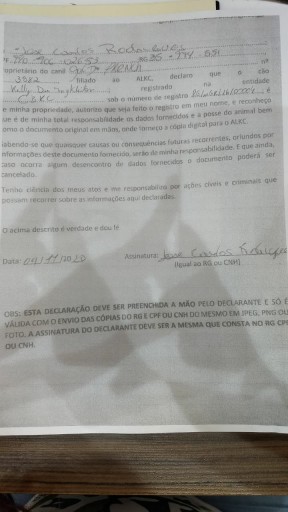 Jose Carlos Rodrigues
nº
proprietario do canil PARANÁ
filiado ao ALKC, declaro que o cão
Kelly registrado na entidade
CBKC sob o número de registro e
é minha propriedade, autorizo que seja feito o registro em meu nome, e reconheço
que é de minha total responsabilidade os dados fornecidos e a posse do animal bem
como o documento original em mãos, onde forneço a cópia digital para o ALKC.
Sabendo-se que quaisquer causas ou consequências futuras recorrentes, oriundos por
informações deste documento fornecido, serão de minha responsabilidade. E que ainda,
caso ocorra algum desencontro de dados fornecidos o documento poderá ser
cancelado.
Tenho ciência dos meus atos e me responsabilizo por ações cíveis e criminais que
possam recorrer sobre as informações aqui declaradas.
O acima descrito é verdade e dou fé
Data: 04/11/2020 Assinatura: Jose Carlos Rodrigues
(igual ao RG ou CNH)
OBS: ESTA DECLARAÇÃO DEVE SER PREENCHIDA A MÃO PELO DECLARANTE E SÓ É
VÁLIDA COM O ENVIO DAS CÓPIAS DO RG E CPF OU CNH DO MESMO EM JPEG, PNG OU
FOTO. A ASSINATURA DO DECLARANTE DEVE SER A MESMA QUE CONSTA NO RG CPF
OU CNH.